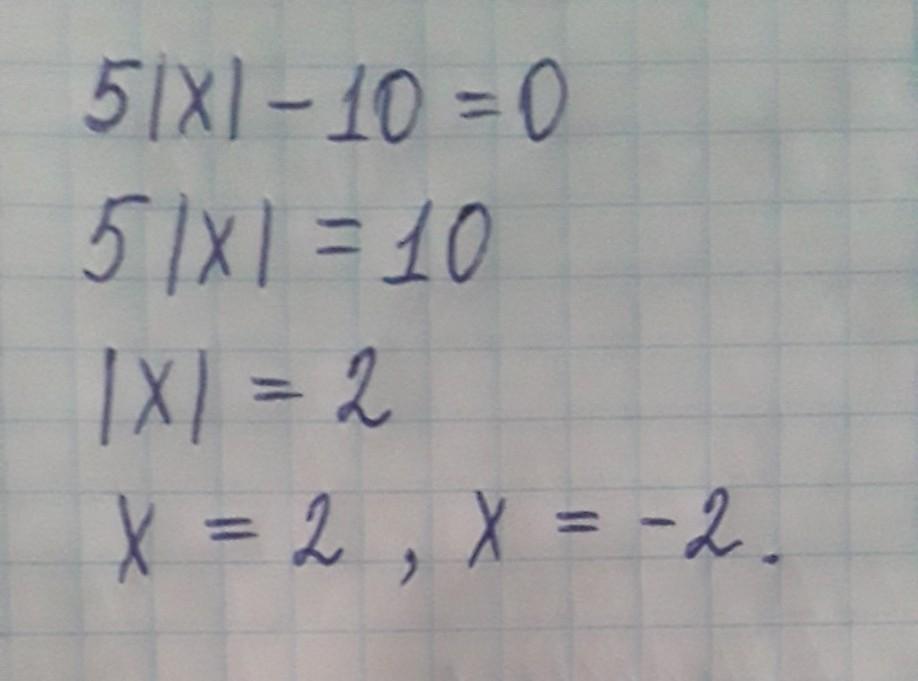 5|x| - 10 = 0
5|x| = 10
|x| = 2
x = 2, x = -2.